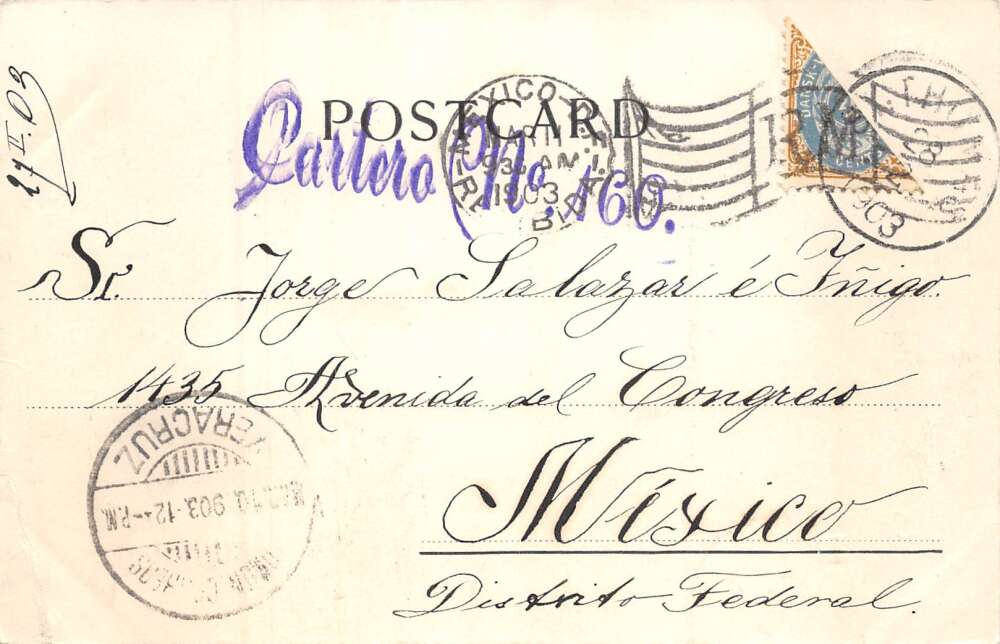 27 II. 03
POSTCARD
Cartero No. 160.
MEXICO
MAR 11
93 AM
1903
DANSK
1903
Sr. Jorge Salazar é Yñigo.
1435 Avenida del Congreso
México
Distrito Federal.
VERACRUZ
MAR 10 903 · 12 - P.M.